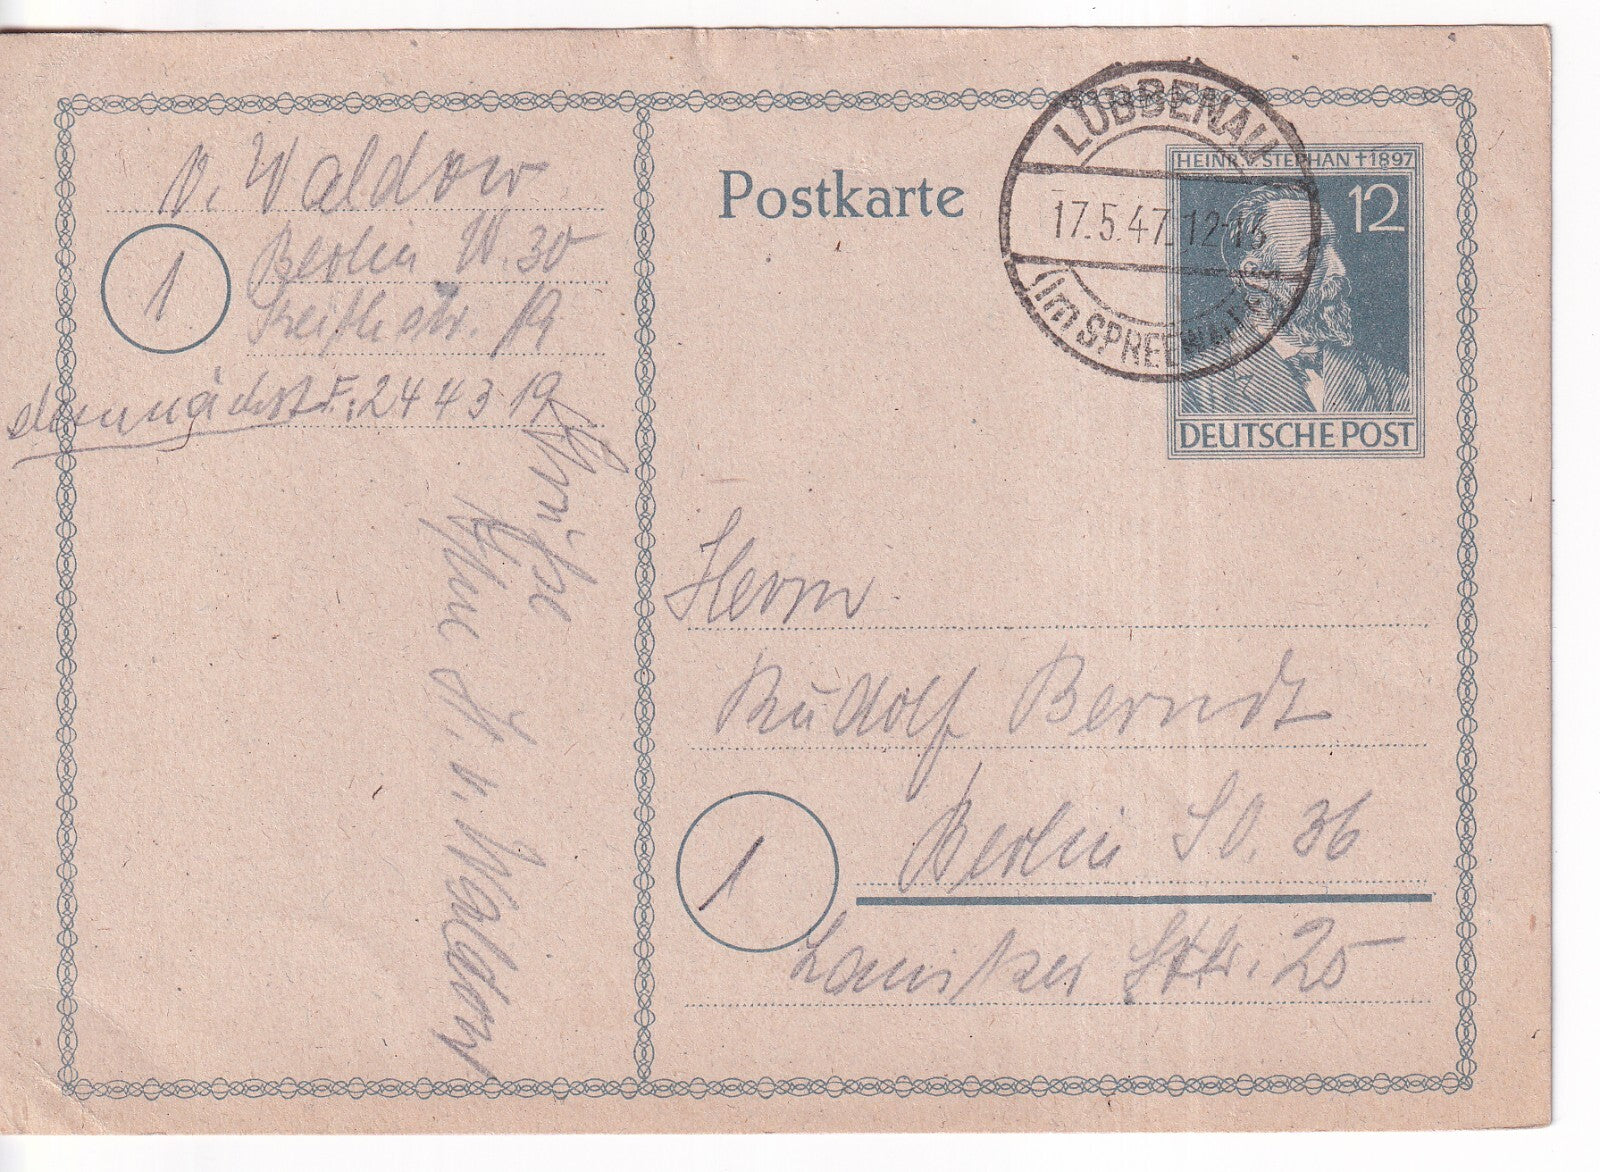 v. Waldow
1
Berlin W. 30
Keithstr. 19
demnächst F. 24 43 19
Grüße
Ihre H. v. Waldow
Postkarte
LÜBBENAU
17.5.47.12-13
(im SPREEWALD)
HEINR. V. STEPHAN † 1897
12
DEUTSCHE POST
Herrn
Rudolf Berndt
1
Berlin SO. 36
Lausitzer Str. 25